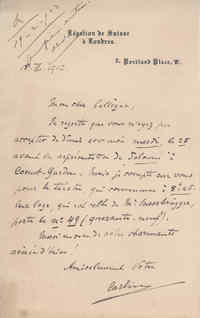 Légation de Suisse
à Londres.
3, Portland Place, W.
Mon cher Collègue,
Je regrette que vous n'ayez pu
accepter de dîner avec moi mardi le 25
avant la représentation de Salomé à
Covent-Garden. Mais je compte sur vous
pour le théâtre qui commence à 8 et
une loge, qui est celle de
porte le no 49 (quarante-neuf).
charmante
Amicalement Vôtre
Carlin